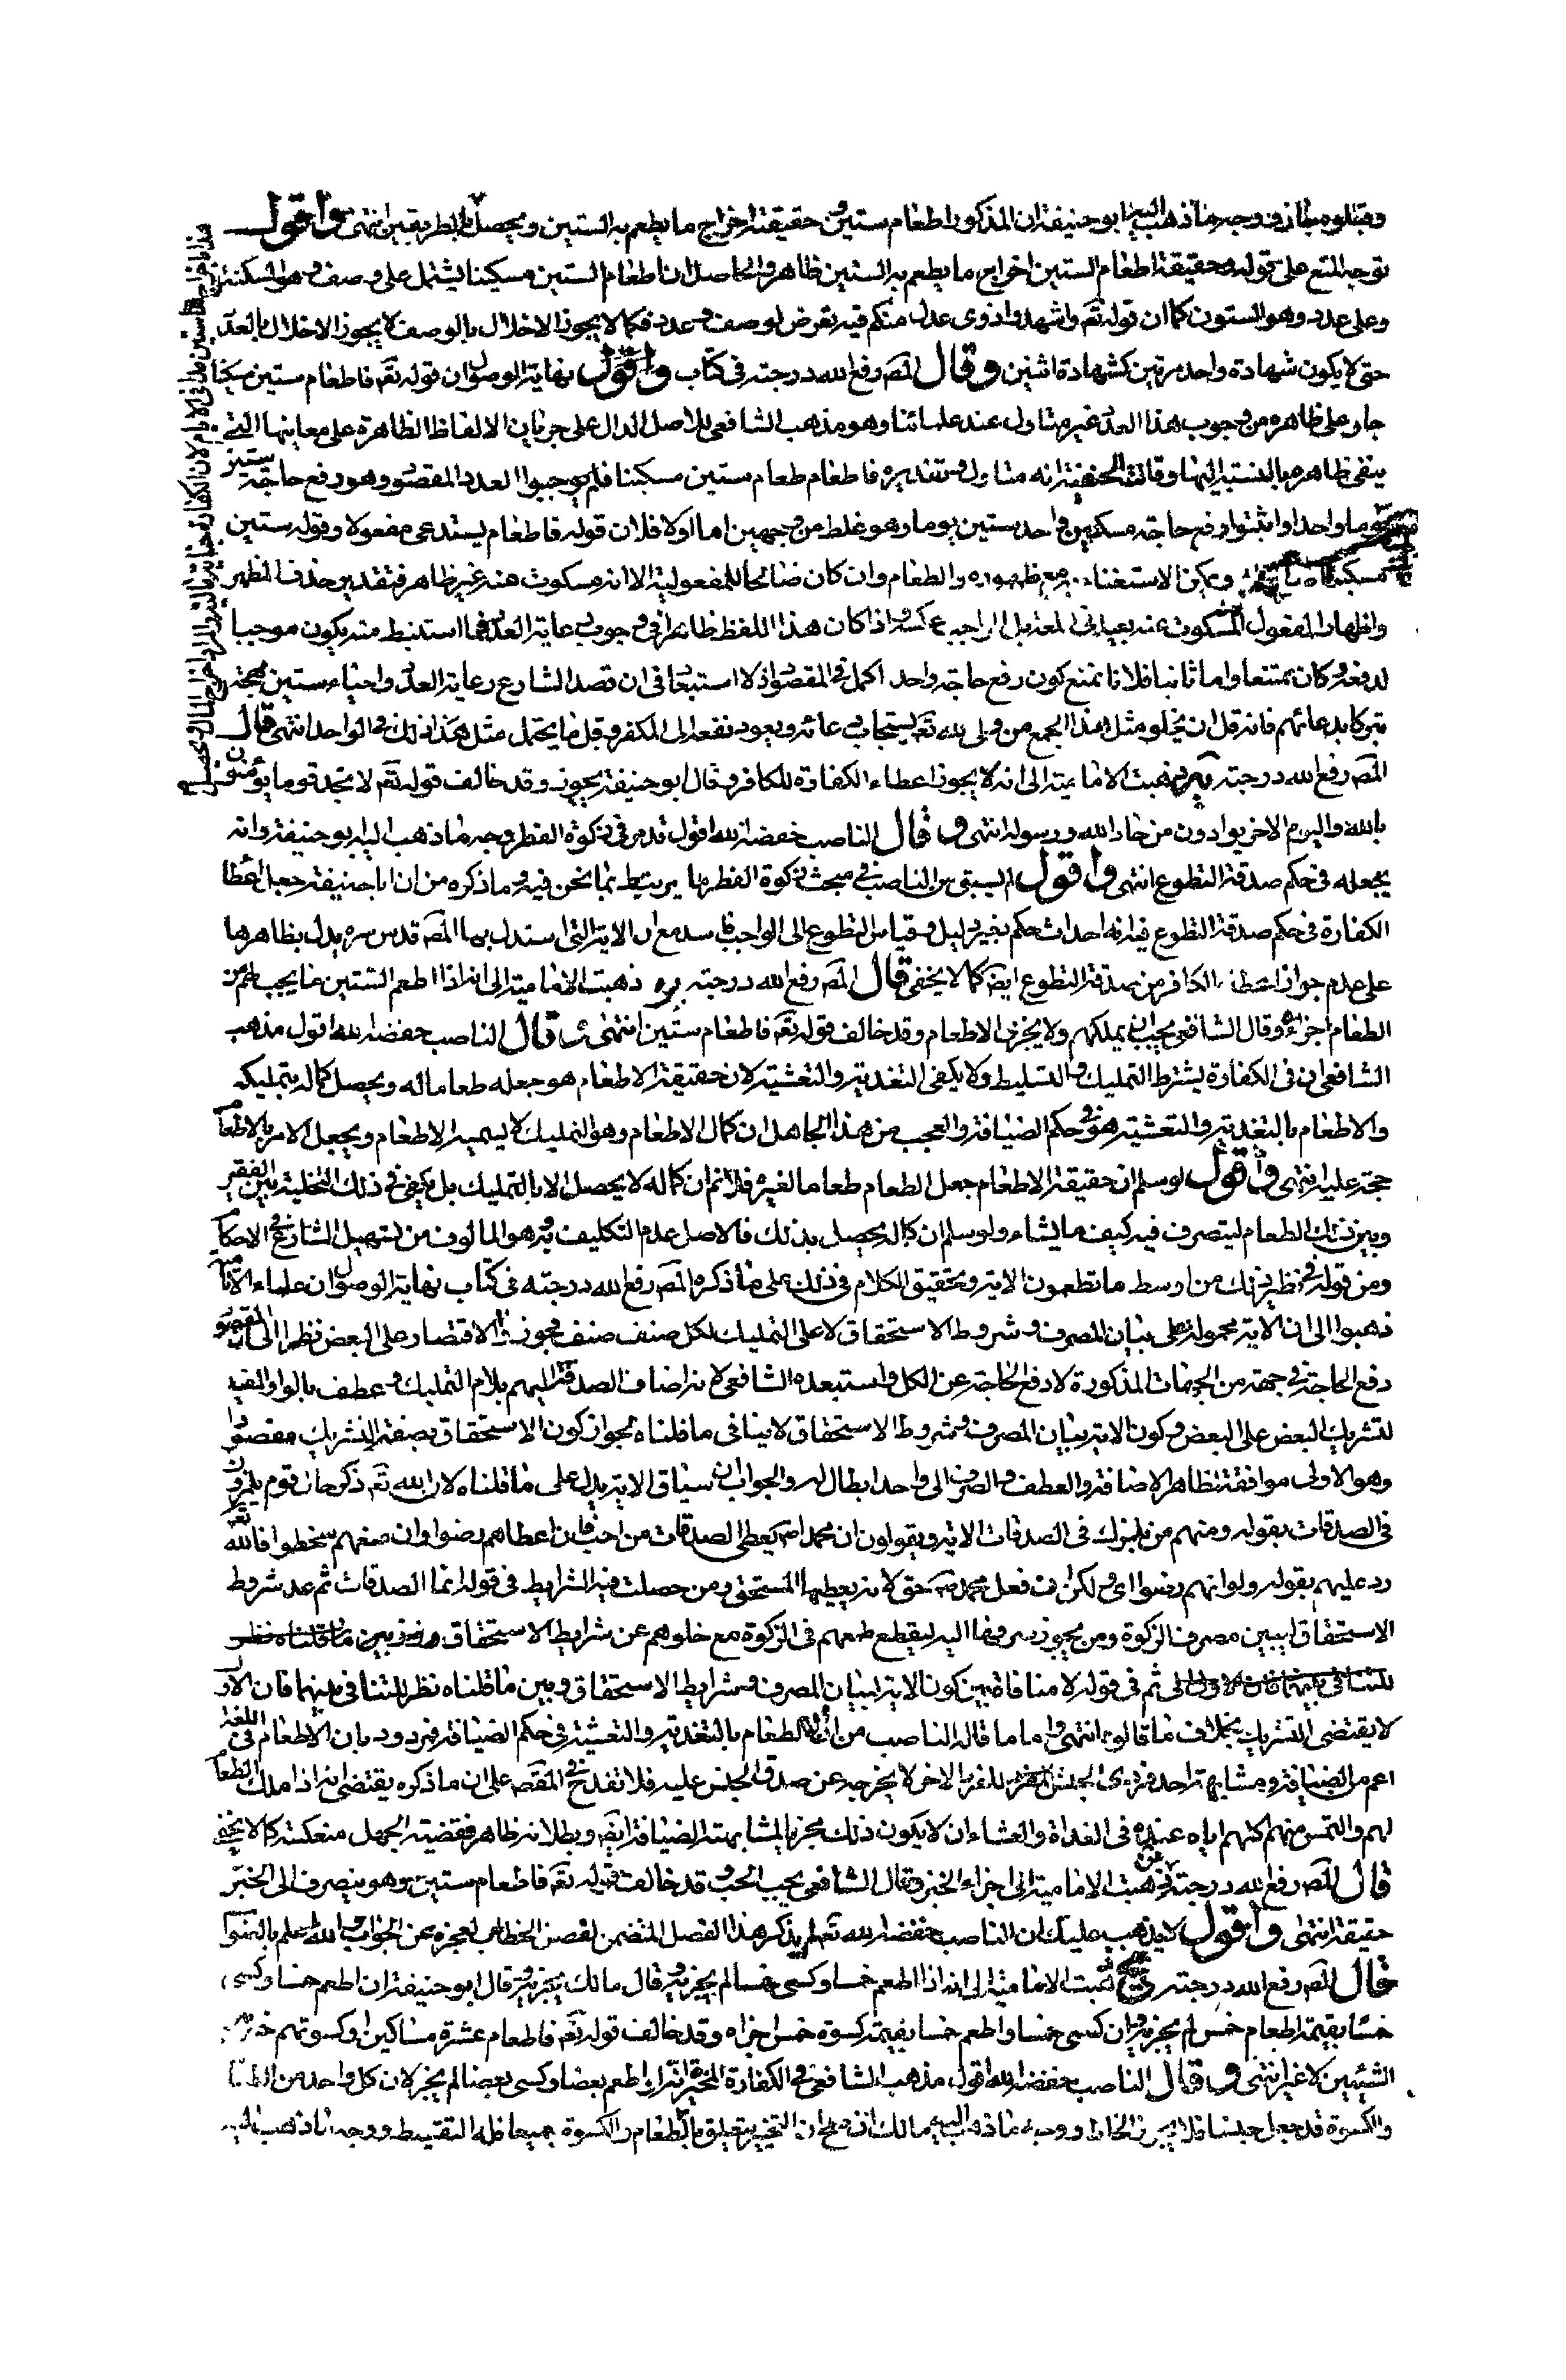 وجه ما ذهب اليه ابو حنيفة ان المذكور اطعام ستين وحقيقته اخراج ما يطعم به الستين ويحصل بالطريقين انتهى واقول
توجه المنع على قوله وحقيقة اطعام الستين اخراج ما يطعم به الستين ظاهر والحاصل ان اطعام الستين مسكينا يشتمل على وصف وهو المسكنة
وعلى عدد وهو الستون كما ان قوله تعم واشهدوا ذوى عدل منكم فيه تعرض لوصف وعدد فكما لا يجوز الاخلال بالوصف لا يجوز الاخلال بالعدد
حتى لا يكون شهادة واحد مرتين كشهادة اثنين وقال المصه رفع الله درجته فى كتاب نهاية الوصول ان قوله تعم فاطعام ستين مسكينا
جار على ظاهره من وجوب هذا العدد غير متاول عند علمائنا وهو مذهب الشافعى للاصل الدال على جريان الالفاظ الظاهرة على معانيها التى
ظاهره بالنسبة اليها وقالت الحنفية انه متاول وتقديره فاطعام طعام ستين مسكينا فلم يوجبوا العدد المقصود وهو دفع حاجة ستين
يوما واحدا او دفع حاجة مسكين واحد ستين يوما وهو غلط من وجهين اما اولا فلان قوله فاطعام يستدعى مفعولا وقوله ستين
مسكينا ويمكن الاستغناء به مع ظهوره والطعام وان كان صالحا للمفعولية الا انه مسكوت عنه غير ظاهر فتقدير حذف المظهر
واظهار المفعول المسكوت عنه بعيد فى اللغة بل الواجب عكسه واذا كان هذا اللفظ ظاهرا فى وجوب رعاية العدد فما استنبط منه يكون موجبا
لدفعه كان ممتنعا واما ثانيا فلانا نمنع كون رفع حاجة واحد اكمل فى المقصود اذ لا استبعاد فى ان قصد الشارع رعاية العدد واحياء ستين مهجة
تبركا بدعائهم فانه قل ان يخلو مثل هذا الجمع من ولى لله تعم يستجاب دعائه ويعود نفعه الى المكفر وقل ما يحتمل مثل هذا ذلك فى الواحد انتهى قال
المصه رفع الله درجته ذهبت الامامية الى انه لا يجوز اعطاء الكفارة للكافر وقال ابو حنيفة يجوز وقد خالف قوله تعم لا تجد قوما يؤمنون
بالله واليوم الاخر يوادون من حاد الله ورسوله انتهى وقال الناصب خفضه الله اقول قد مر فى زكوة الفطر وجه ما ذهب اليه ابو حنيفة وانه
يجعله فى حكم صدقة التطوع انتهى واقول لم يسبق من الناصب فى مبحث زكوة الفطر ما يرتبط بما نحن فيه وما ذكره من ان ابا حنيفة جعل اعطا
الكفارة فى حكم صدقة التطوع فيه انه احداث حكم بغير دليل وقياس التطوع الى الواجب فاسد مع ان الاية التى استدل بها المصه قدس سره يدل بظاهرها
على عدم جواز اعطاء الكافر من صدقة التطوع ايضا كما لا يخفى قال المصه رفع الله درجته ذهبت الامامية الى انه اذا اطعم الستين ما يجب لهم من
الطعام اجزاه وقال الشافعى يجب ان يملكهم ولا يجزى الاطعام وقد خالف قوله تعم فاطعام ستين انتهى قال الناصب خفضه الله اقول مذهب
الشافعى ان فى الكفارة يشترط التمليك والتسليط ولا يكفى التغدية والتعشية لان حقيقة الاطعام هو جعله طعاما له ويحصل كماله بتمليكه
والاطعام بالتغدية والتعشية هو فى حكم الضيافة والعجب من هذا الجاهل ان كمال الاطعام وهو التمليك لا يسميه الاطعام ويجعل الامر بالاطعام
حجة عليه انتهى واقول لو سلم ان حقيقة الاطعام جعل الطعام طعاما لغيره فلا نم ان كماله لا يحصل الا بالتمليك بل يكفى فى ذلك التخلية بين الفقير
وبين ذلك الطعام ليتصرف فيه كيف ما يشاء ولو سلم ان كماله يحصل بذلك فالاصل عدم التكليف به هو المألوف من تسهيل الشارع فى الاحكام
ومن قوله فى نظير ذلك من اوسط ما تطعمون الاية وتحقيق الكلام فى ذلك على ما ذكره المصه رفع الله درجته فى كتاب نهاية الوصول ان علماء الامامية
ذهبوا الى ان الاية محمولة على بيان المصرف وشروط الاستحقاق لا على التمليك لكل صنف صنف فجوزوا الاقتصار على البعض نظرا الى ان المقصود
دفع الحاجة فى جهة من الجهات المذكورة لا دفع الحاجة عن الكل واستبعده الشافعى لانه اضاف الصدقة اليهم بلام التمليك وعطف بالواو المفيد
لتشريك البعض على البعض وكون الاية لبيان المصرف وشروط الاستحقاق لا ينافى ما قلناه لجواز كون الاستحقاق بصفة التشريك مقصودا
وهو الاولى موافقة لظاهر الاضافة والعطف والصرف الى واحد ابطال له والجواب ان سياق الاية يدل على ما قلناه لان الله تعم ذكر حال قوم يلمزون
فى الصدقات بقوله ومنهم من يلمزك فى الصدقات الاية ويقولون ان محمدا صم يعطى الصدقات من احب فان اعطاهم رضوا وان منعهم سخطوا فالله
رد عليهم بقوله ولو انهم رضوا اى لكن ان فعل محمد صم حق لانه يعطيها المستحق ومن حصلت فيه الشرايط فى قوله انما الصدقات ثم عد شروط
الاستحقاق ليبين مصرف الزكوة ومن يجوز صرفها اليه ليقطع طمعهم فى الزكوة مع خلوهم عن شرايط الاستحقاق
ثم فى قوله لا منافاة بين كون الاية لبيان المصرف وشرايط الاستحقاق وبين ما قلناه نظر للتنافى بينهما فان الاول
لا يقتضى التشريك بخلاف ما قالوه انتهى واما ما قاله الناصب من ان الاطعام بالتغدية والتعشية فى حكم الضيافة فمردود بان الاطعام فى اللغة
اعم من الضيافة ومشابهة احد فردى الجنس للفرد الاخر لا يخرجه عن صدق الجنس عليه فلا تقدح فى المقصه على ان ما ذكره يقتضى انه اذا ملك الطعام
لهم والتمس منهم اكلهم اياه عنده فى الغداة والعشاء ان لا يكون ذلك مجزيا لمشابهته الضيافة ايضا وبطلانه ظاهر فقضية الجهل منعكسة كما لا يخفى
قال المصه رفع الله درجته ذهبت الامامية الى اجزاء الخبز وقال الشافعى يجب الحب وقد خالف قوله تعم فاطعام ستين وهو ينصرف الى الخبز
حقيقة انتهى واقول لا يذهب عليك ان الناصب خفضه الله تعم لم يذكر هذا الفصل المتضمن لنقض الخطاب لعجزه عن الجواب والله اعلم بالصواب
قال المصه رفع الله درجته ذهبت الامامية الى انه اذا اطعم خمسا وكسى خمسا لم يجزيه وقال مالك يجزيه وقال ابو حنيفة ان اطعم خمسا وكسى
خمسا بقيمة اطعام خمس لم يجزيه وان كسى خمسا واطعم خمسا بقيمة كسوة خمس اجزاه وقد خالف قوله تعم فاطعام عشرة مساكين او كسوتهم
الشيئين لا غير انتهى وقال الناصب خفضه الله اقول مذهب الشافعى فى الكفارة المخيرة انه لو اطعم بعضا وكسى بعضا لم يجز لان كل واحد من
والكسوة قد جعل جنسا فلا يجوز الخلط ووجه ما ذهب اليه مالك ان التخيير يتعلق بالطعام والكسوة جميعا فله التقسيط ووجه ما ذهب اليه